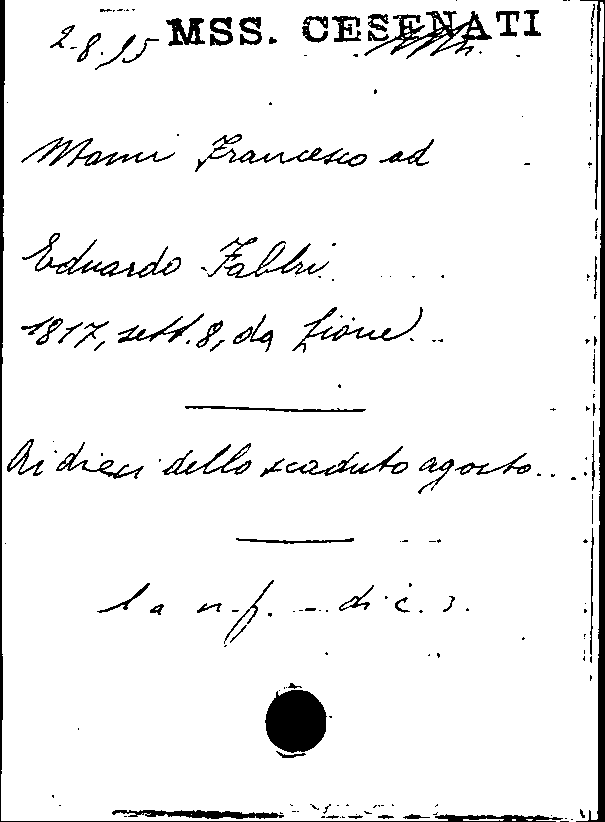 2-8.95 MSS. CESENATI
Mami Francesco ad
Eduardo Fabbri
1817, sett. 8, da Lione.
Ai dieci dello scaduto agosto...
1 a n.f. - di c. 3.